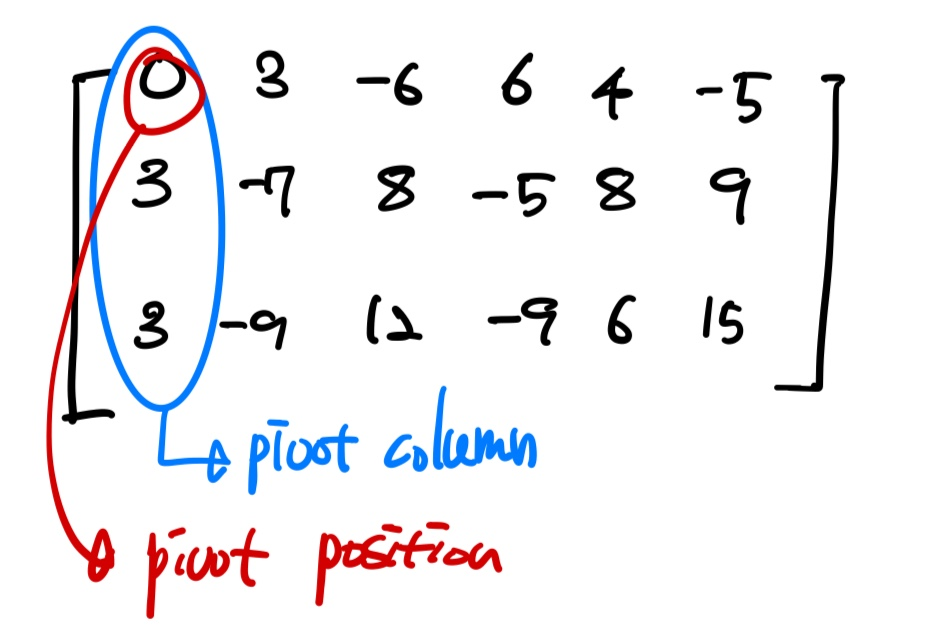 0 3 -6 6 4 -5
3 -7 8 -5 8 9
3 -9 12 -9 6 15
pivot column
pivot position